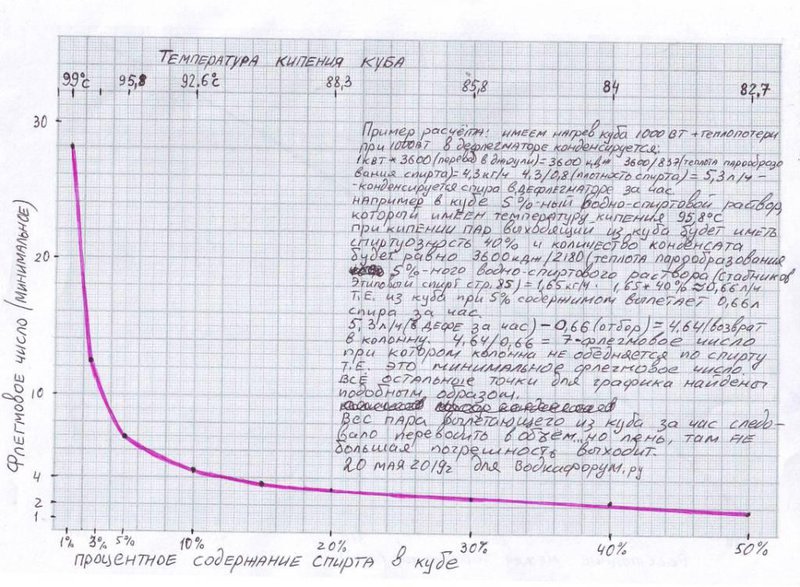 Температура кипения куба
99°с 95,8 92,6°с 88,3 85,8 84 82,7
Пример расчёта: имеем нагрев куба 1000 Вт + теплопотери
при 1000Вт в дефлегматоре конденсируется:
1квт * 3600 (перевод в джоули) = 3600 кДж 3600/837 (теплота парообразо
вания спирта) = 4,3 кг/ч 4,3/0,8 (плотность спирта) = 5,3 л/ч –
-конденсируется спирта в дефлегматоре за час
например в кубе 5%-ный водно-спиртовой раствор,
который имеет температуру кипения 95,8°с
при кипении пар выходящий из куба будет иметь
спиртуозность 40% и количество конденсата
будет равно 3600кдж/2180 (теплота парообразования
5%-ного водно-спиртового раствора (Стабников
Этиловый спирт стр. 85) = 1,65 кг/ч. 1,65 * 40% ≈ 0,66 л/ч
т.е. из куба при 5% содержимом вылетает 0,66л
спира за час.
5,3 л/ч (в дефе за час) – 0,66 (отбор) = 4,64 (возврат
в колонну. 4,64/0,66 = 7 - флегмовое число
при котором колонна не обедняется по спирту
т.е. это минимальное флегмовое число.
Все остальные точки для графика найдены
подобным образом.
Вес пара вылетающего из куба за час следо-
вало переводить в объем, но лень, там не
большая погрешность выходит.
20 мая 2019г для Водкафорум.ру
Флегмовое число (минимальное)
30
20
10
4
2
1
1% 3% 5% 10% 20% 30% 40% 50%
процентное содержание спирта в кубе